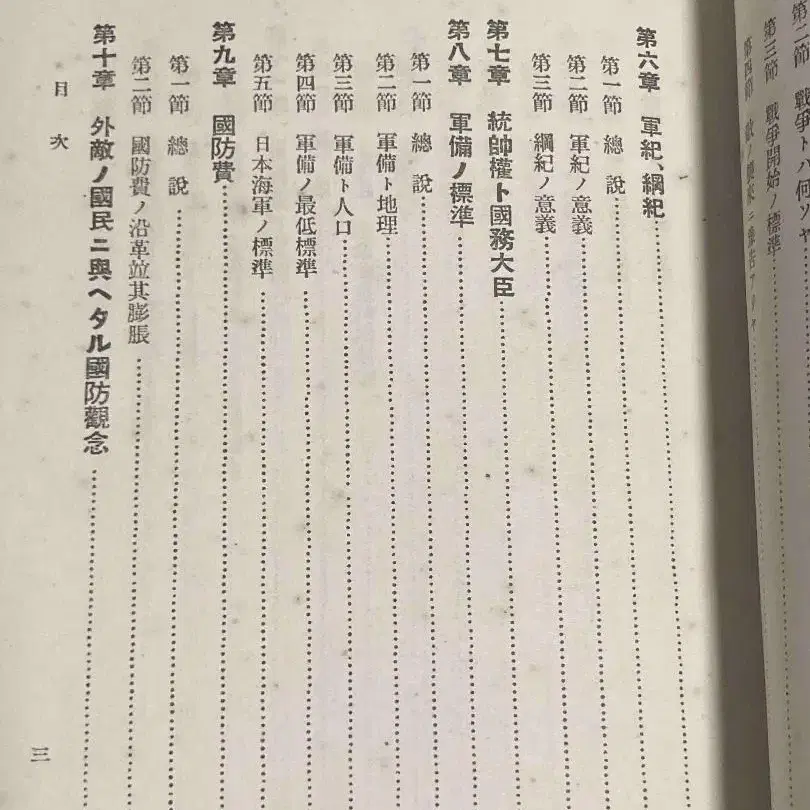 第二節 戰爭トハ何ソヤ
第三節 戰爭開始ノ標準
第四節 敵ノ襲來ニ豫告アリヤ
第六章 軍紀、綱紀
第一節 總説
第二節 軍紀ノ意義
第三節 綱紀ノ意義
第七章 統帥權ト國務大臣
第八章 軍備ノ標準
第一節 總説
第二節 軍備ト地理
第三節 軍備ト人口
第四節 軍備ノ最低標準
第五節 日本海軍ノ標準
第九章 國防費
第一節 總説
第二節 國防費ノ沿革竝其膨脹
第十章 外敵ノ國民ニ與ヘタル國防觀念
目次
三